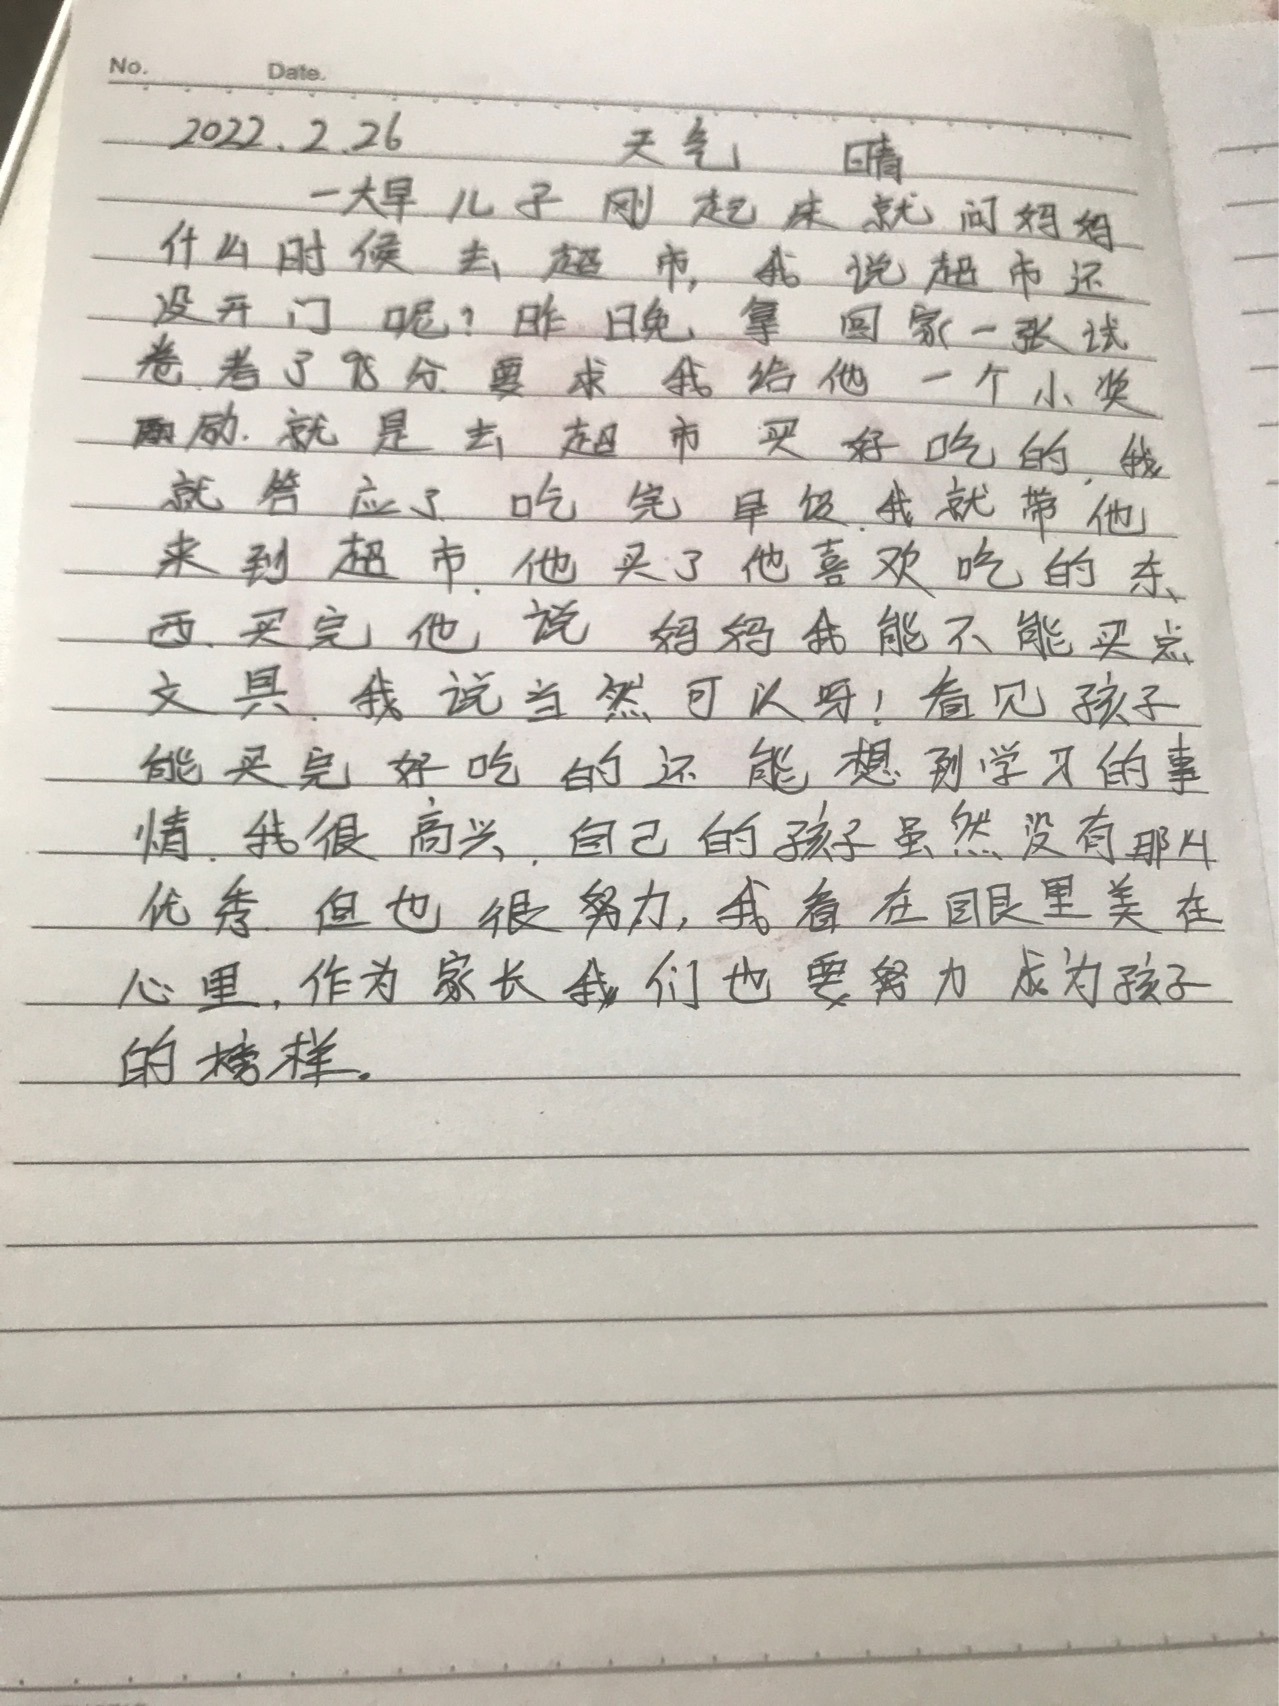 No. Date.
2022.2.26 天气 晴
一大早儿子刚起床就问妈妈
什么时候去超市,我说超市还
没开门呢?昨晚拿回家一张试
卷考了98分要求我给他一个小奖
励.就是去超市买好吃的,我
就答应了吃完早饭.我就带他
来到超市.他买了他喜欢吃的东
西.买完他说妈妈我能不能买点
文具.我说当然可以呀!看见孩子
能买完好吃的还能想到学习的事
情.我很高兴.自己的孩子虽然没有那么
优秀.但也很努力,我看在眼里美在
心里,作为家长我们也要努力成为孩子
的榜样.